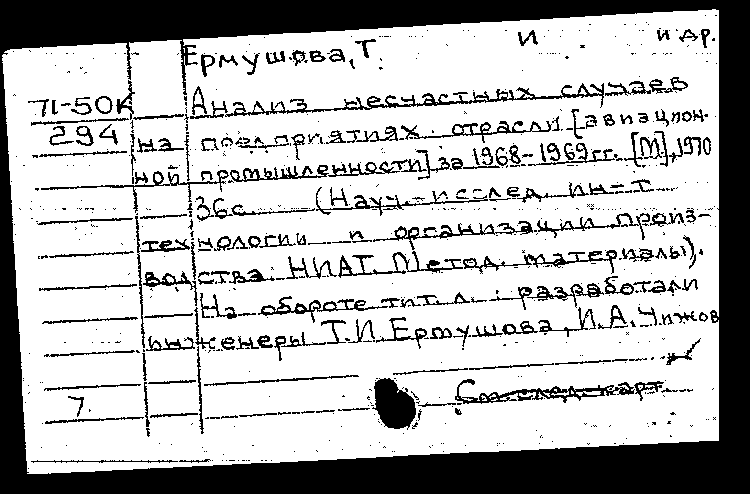 Ермушова, Т. И. и др.
71-50К Анализ несчастных случаев
294 на предприятиях отрасли [авиацион-
ной промышленности] за 1968-1969гг. [М], 1970
36с. (Науч.-исслед. ин-т
технологии и организации произ-
водства: НИАТ. Метод. материалы).
На обороте тит. л.: разработали
инженеры Т.И. Ермушова, И.А. Чижов
См. след. карт.
7